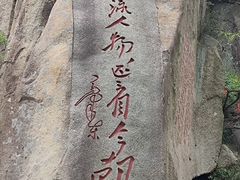 流人物还看今朝
毛泽东